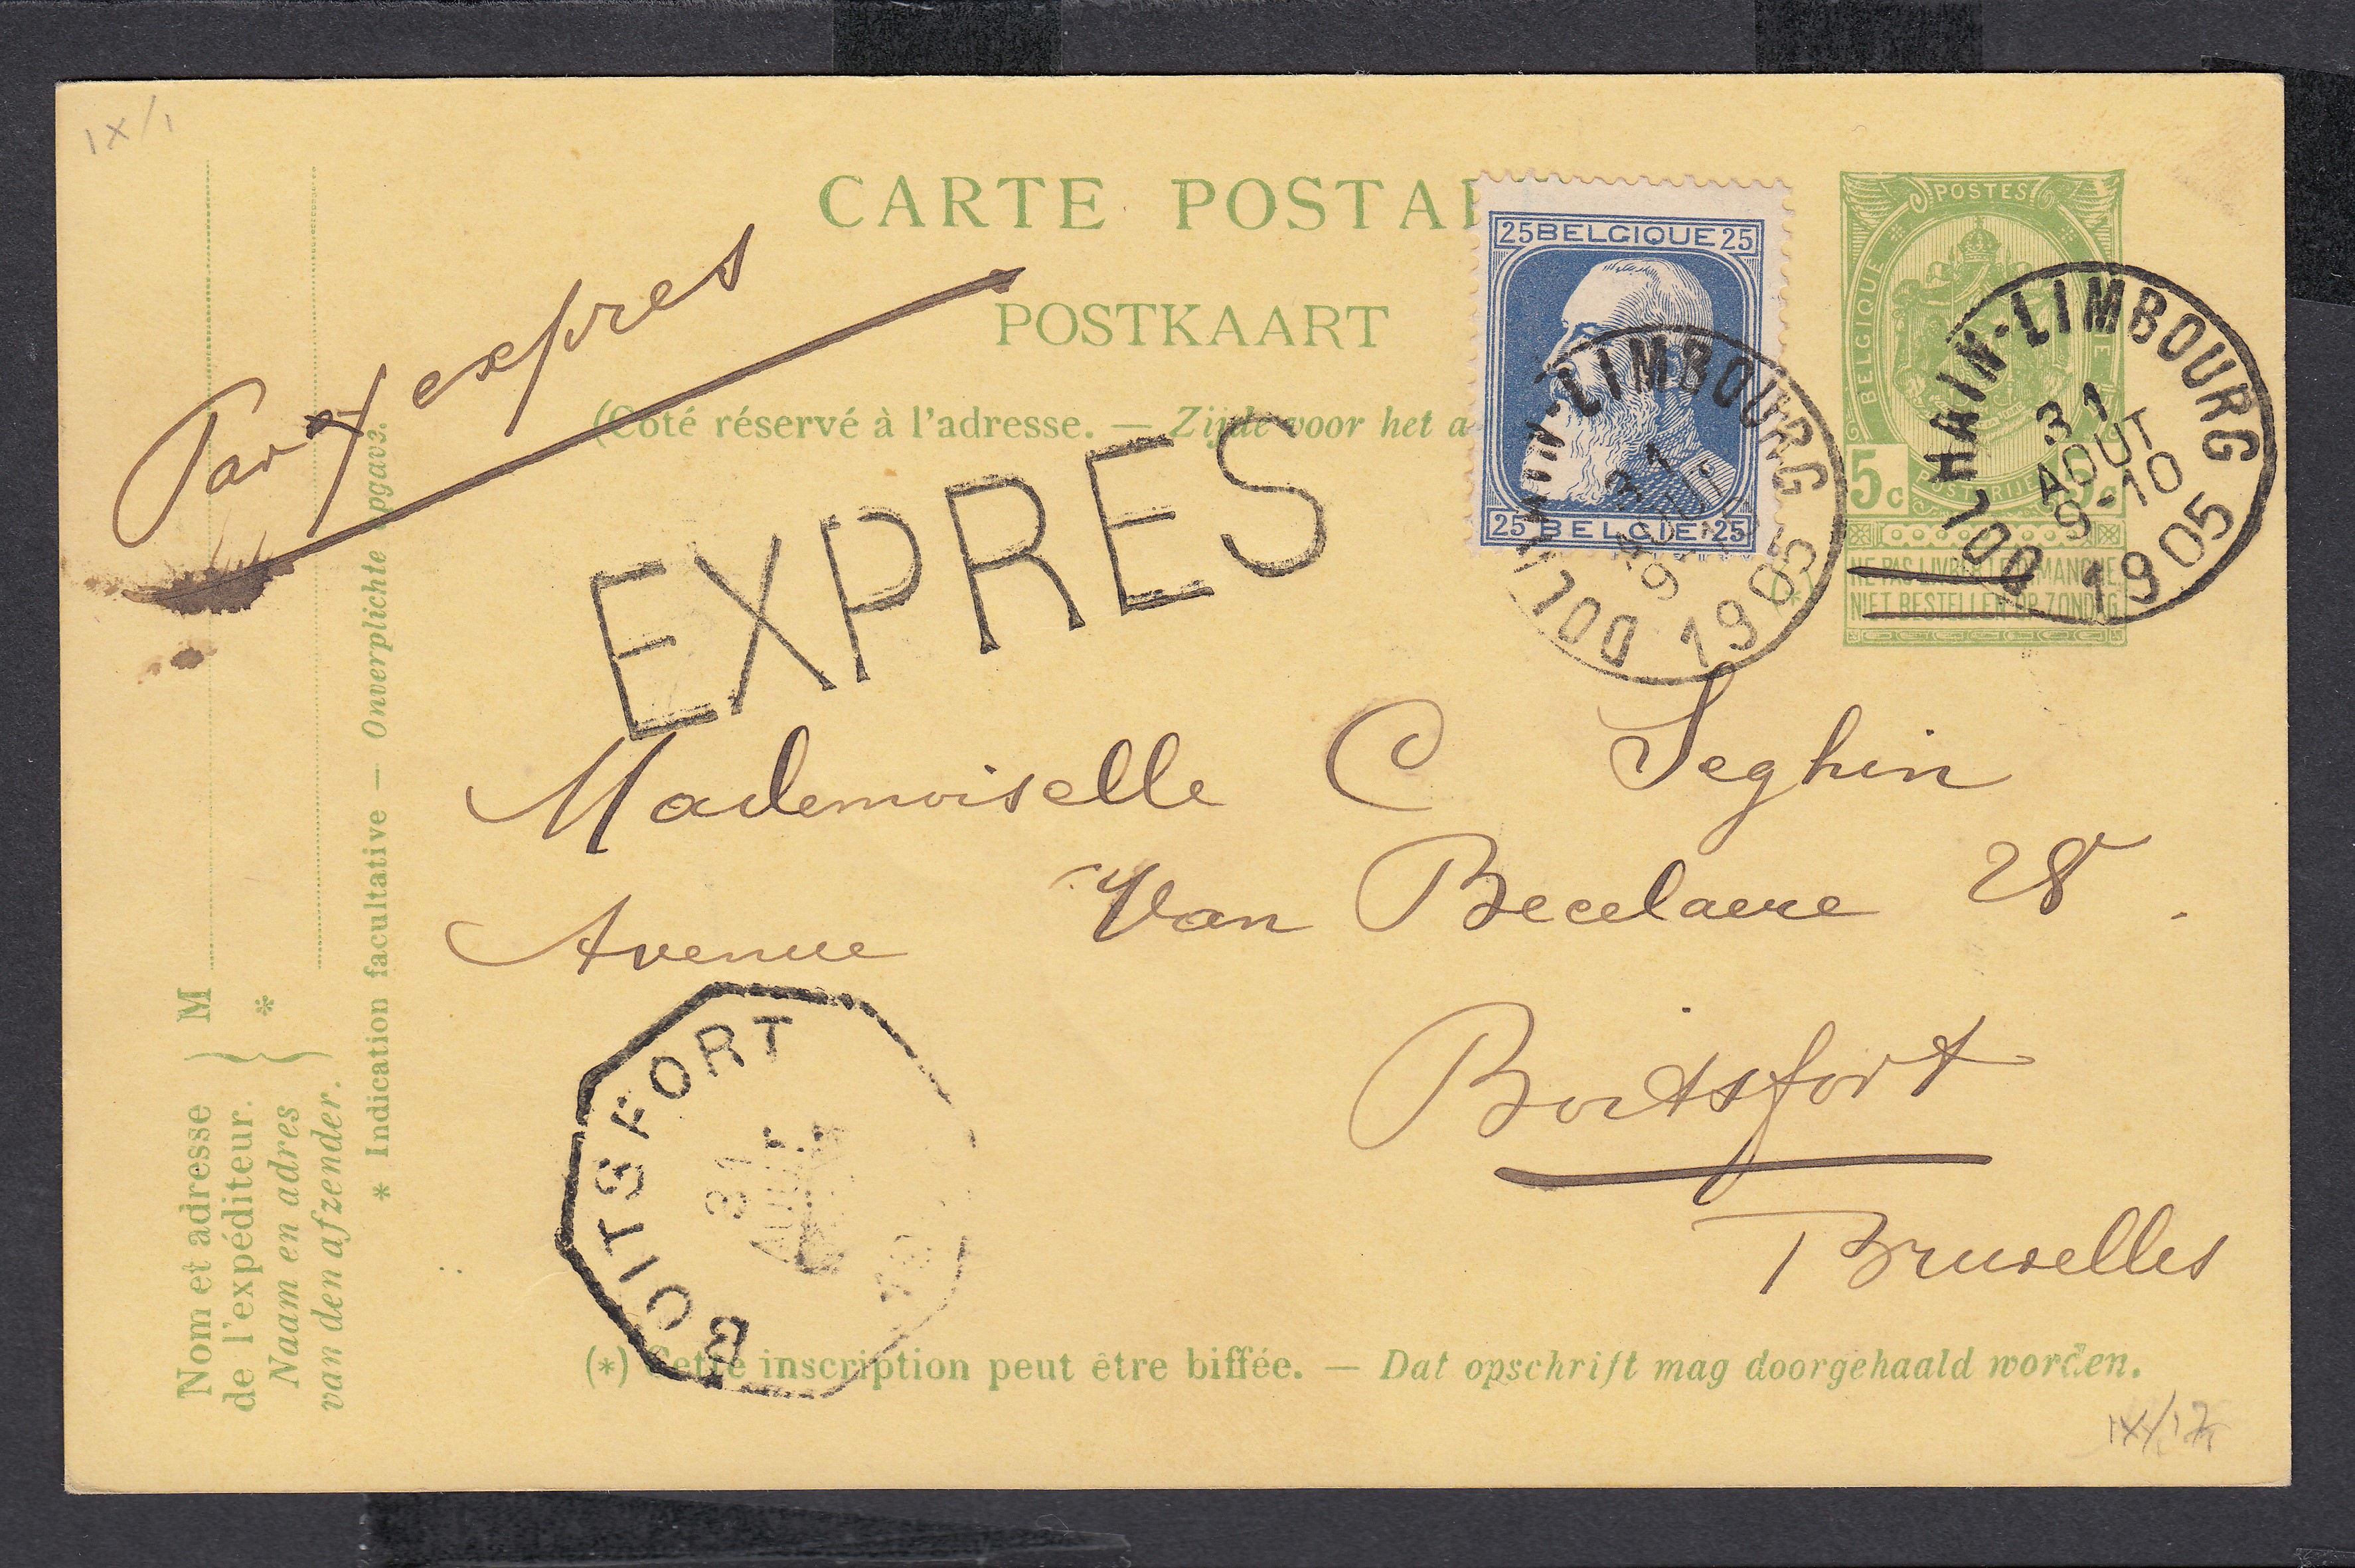 IX/1
CARTE POSTAL
POSTKAART
(Côté réservé à l'adresse. — Zijde voor het a
Par exprès
EXPRES
25 BELGIQUE 25
25 BELGIE 25
DOLHAIN-LIMBOURG
31
AOUT
9
1905
POSTES
BELGIQUE
POSTERIJEN
5c 5c
NE PAS LIVRER LE DIMANCHE
NIET BESTELLEN OP ZONDAG
DOLHAIN-LIMBOURG
31
AOUT
9-10
1905
(*)
Mademoiselle C Seghin
Avenue Van Becelaere 28.
Boitsfort
Bruxelles
BOITSFORT
31
AOUT
(*) Cette inscription peut être biffée. — Dat opschrift mag doorgehaald worden.
Nom et adresse
de l'expéditeur.
Naam en adres
van den afzender.
M
*
* Indication facultative — Onverplichte opgave.